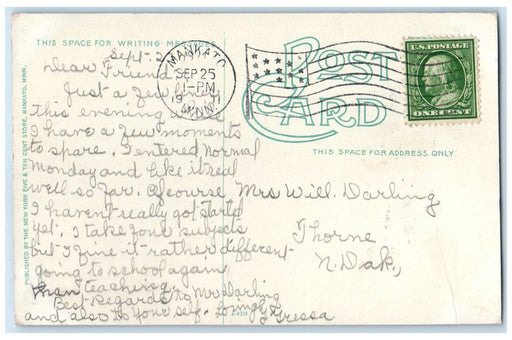 THIS SPACE FOR WRITING MESSAGES
POST
CARD
THIS SPACE FOR ADDRESS ONLY.
MANKATO
SEP 25
1-PM
19 11
MINN.
U.S. POSTAGE
ONE CENT
PUBLISHED BY THE NEW YORK FIVE & TEN CENT STORE, MANKATO, MINN.
Sept. 2
Dear Friend
Just a few lines
this evening while
I have a few moments
to spare. I entered Normal
Monday and like it real
well so far. Of course
I haven't really got start'd
yet. I take four subjects
but I fine it rather different
going to school again
than teaching.
Best Regards to Mr Darling
and also to your self. Lovingly
Gressa
Mrs Will. Darling
Thorne
N. Dak.,